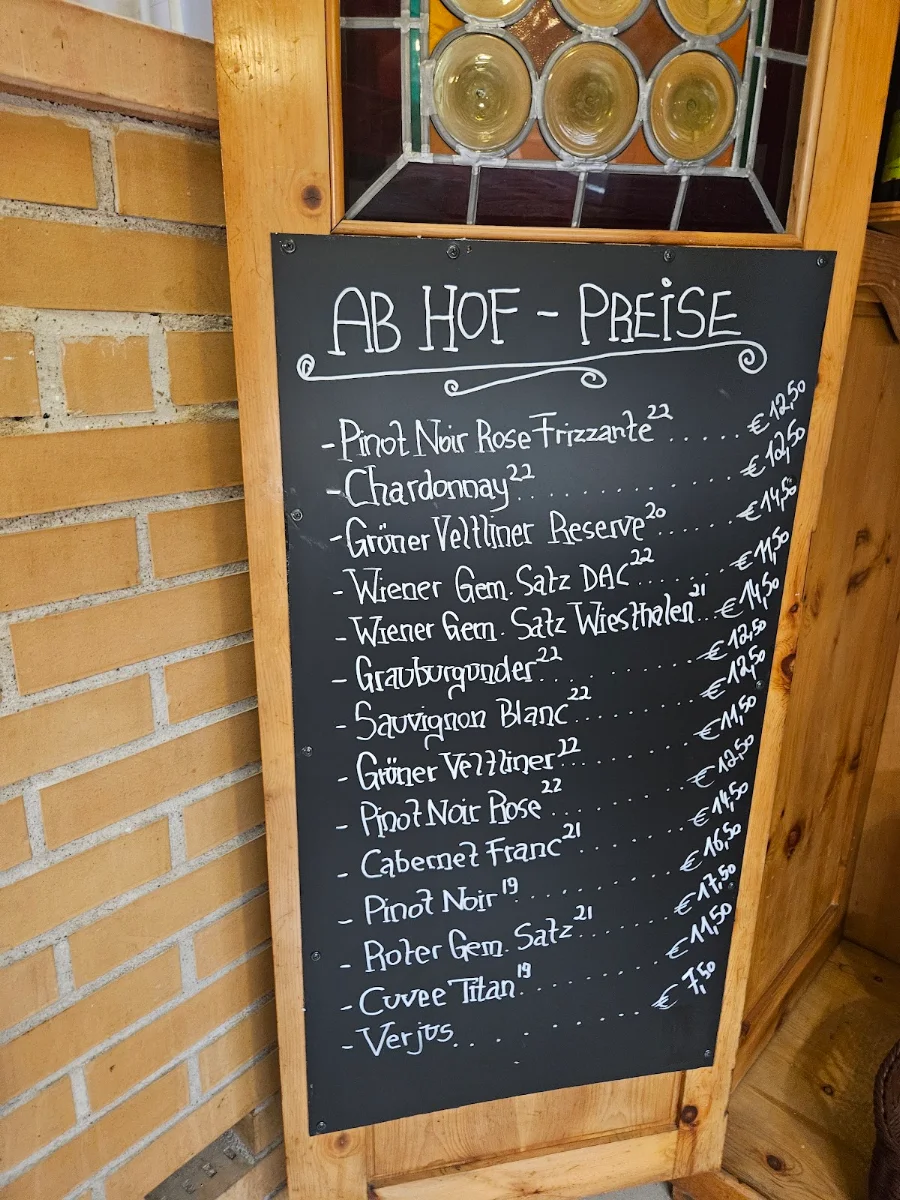 AB HOF - PREISE
- Pinot Noir Rose Frizzante 22 ...... € 12,50
- Chardonnay 22 ............... € 12,50
- Grüner Veltliner Reserve 20 ...... € 14,50
- Wiener Gem. Satz DAC 22 ...... € 11,50
- Wiener Gem. Satz Wiesthalen 21 ... € 14,50
- Grauburgunder 22 ............ € 12,50
- Sauvignon Blanc 22 ......... € 12,50
- Grüner Veltliner 22 ......... € 11,50
- Pinot Noir Rose 22 ......... € 12,50
- Cabernet Franc 21 ......... € 14,50
- Pinot Noir 19 ............ € 16,50
- Roter Gem. Satz 21 ......... € 17,50
- Cuvee Titan 19 ............ € 11,50
- Verjus ............ € 7,50